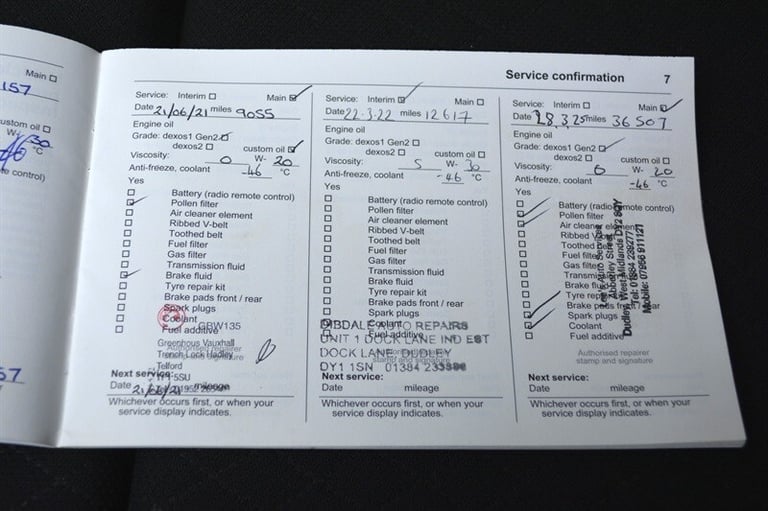 157
Main
custom oil
W- 30
°C
e control)
57
Service confirmation 7
Service: Interim Main
Date 21/06/21 miles 9055
Engine oil
Grade: dexos1 Gen2
dexos2 custom oil
Viscosity: 0 W- 20
Anti-freeze, coolant -46 °C
Yes
Battery (radio remote control)
Pollen filter
Air cleaner element
Ribbed V-belt
Toothed belt
Fuel filter
Gas filter
Transmission fluid
Brake fluid
Tyre repair kit
Brake pads front / rear
Spark plugs
Coolant
Fuel additive
GBW135
Greenhous Vauxhall
Trench Lock Hadley
Telford
Authorised repairer
stamp and signature
Next service:
Date 21/06/21 mileage
Whichever occurs first, or when your
service display indicates.
Service: Interim Main
Date 22.3.22 miles 12617
Engine oil
Grade: dexos1 Gen2
dexos2 custom oil
Viscosity: 5 W- 30
Anti-freeze, coolant -46 °C
Yes
Battery (radio remote control)
Pollen filter
Air cleaner element
Ribbed V-belt
Toothed belt
Fuel filter
Gas filter
Transmission fluid
Brake fluid
Tyre repair kit
Brake pads front / rear
Spark plugs
Coolant
Fuel additive
AUTO REPAIRS
UNIT 1 DOCK LANE IND EST
DOCK LANE DUDLEY
stamp and signature
DY1 1SN 01384
Next service:
Date mileage
Whichever occurs first, or when your
service display indicates.
Service: Interim Main
Date 28.3.25 miles 36507
Engine oil
Grade: dexos1 Gen2
dexos2 custom oil
Viscosity: 0 W- 20
Anti-freeze, coolant -46 °C
Yes
Battery (radio remote control)
Pollen filter
Air cleaner element
Ribbed V-belt
Toothed belt
Fuel filter
Gas filter
Transmission fluid
Brake fluid
Tyre repair kit
Brake pads front / rear
Spark plugs
Coolant
Fuel additive
Auto Services
Street
Dudley West Midlands DY2 8QY
Tel: 01384
Mobile: 07956 911721
Authorised repairer
stamp and signature
Next service:
Date mileage
Whichever occurs first, or when your
service display indicates.